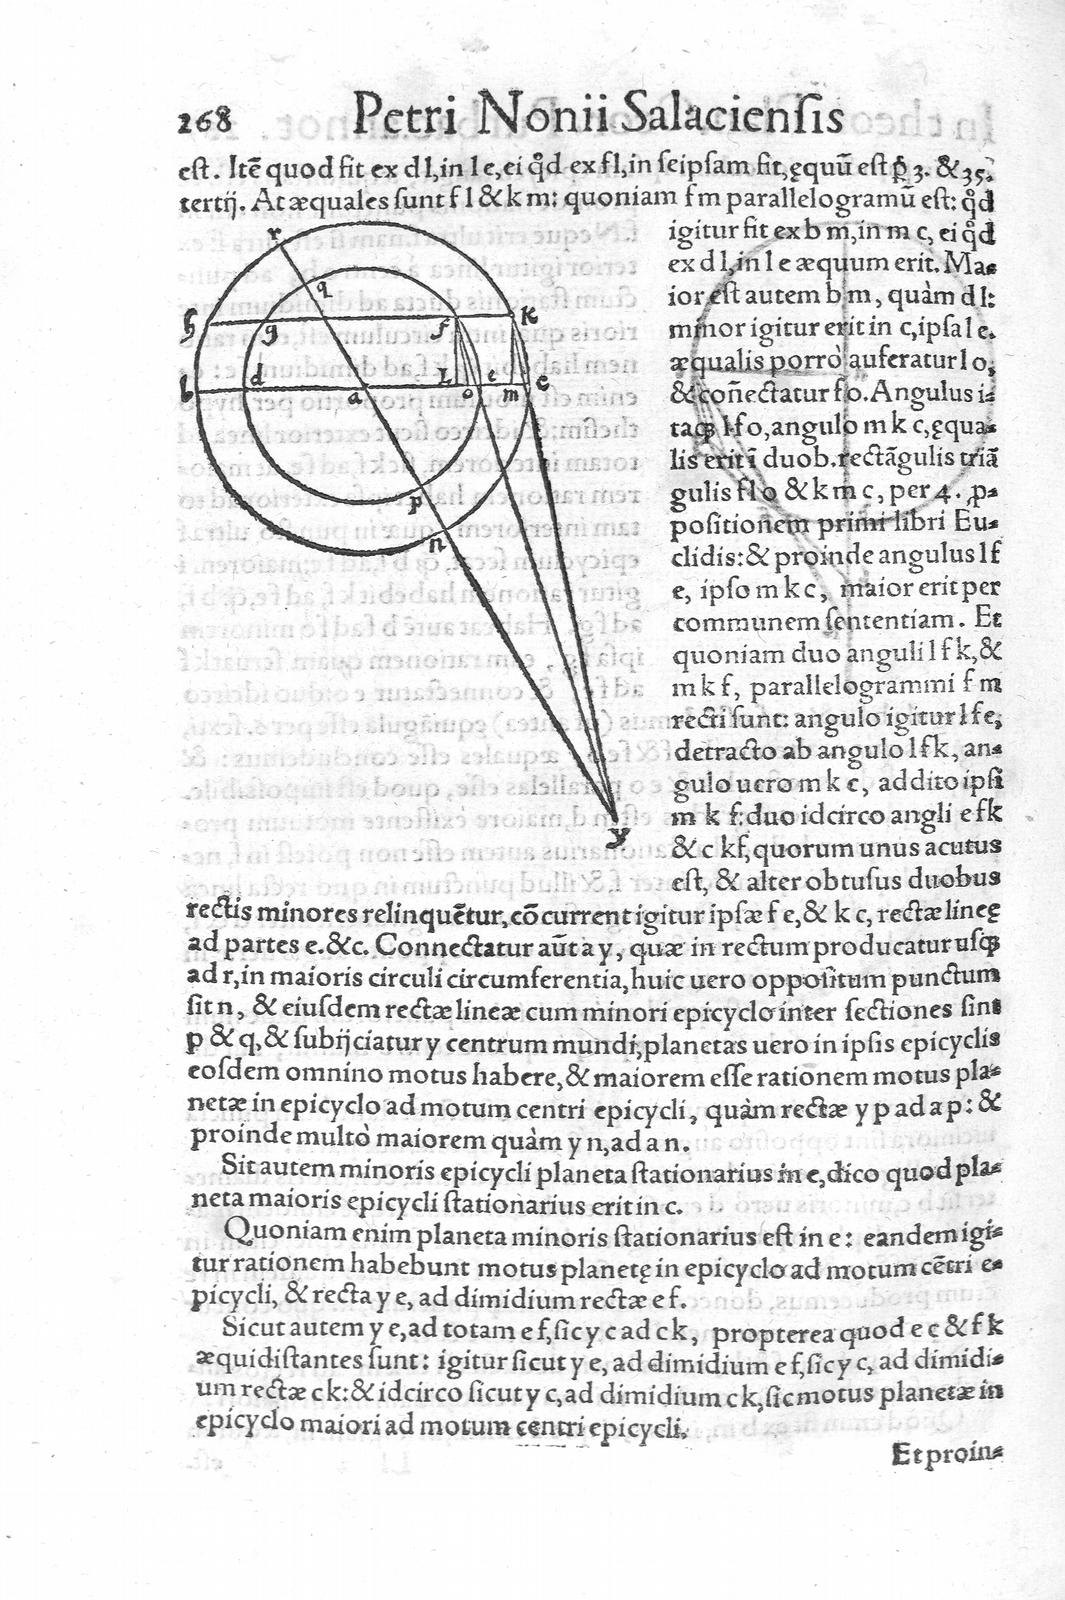 268 Petri Nonii Salaciensis
est. Itē quod fit ex d l, in l e, ei qd̊ ex f l, in seipsam fit, ęquū est ꝑ 3. & 35.
tertij. At æquales sunt f l & k m: quoniam f m parallelogramū est: qd̊
igitur fit ex b m, in m c, ei qd̊
ex d l, in l e æquum erit. Ma-
ior est autem b m, quàm d l:
minor igitur erit m c, ipsa l e.
æqualis porrò auferatur l o,
& con̄ectatur f o. Angulus i-
taqȝ l f o, angulo m k c, ęqua-
lis erit ī duob. rectāgulis triā
gulis f l o & k m c, per 4. ꝓ-
positionem primi libri Eu-
clidis: & proinde angulus l f
e, ipso m k c, maior erit per
communem sententiam. Et
quoniam duo anguli l f k, &
m k f, parallelogrammi f m
recti sunt: angulo igitur l f e,
detracto ab angulo l f k, an-
gulo uero m k c, addito ipsi
m k f: duo idcirco angli e f k
& c k f, quorum unus acutus
est, & alter obtusus duobus
rectis minores relinquētur, cōcurrent igitur ipsæ f e, & k c, rectæ lineę
ad partes e. & c. Connectatur aūt a y, quæ in rectum producatur usqȝ
ad r, in maioris circuli circumferentia, huic uero oppositum punctum
sit n, & eiusdem rectæ lineæ cum minori epicyclo inter sectiones sint
p & q, & subijciatur y centrum mundi, planetas uero in ipsis epicyclis
eosdem omnino motus habere, & maiorem esse rationem motus pla-
netæ in epicyclo ad motum centri epicycli, quàm rectæ y p ad a p: &
proinde multò maiorem quàm y n, ad a n.
Sit autem minoris epicycli planeta stationarius in e, dico quod pla-
neta maioris epicycli stationarius erit in c.
Quoniam enim planeta minoris stationarius est in e: eandem igi-
tur rationem habebunt motus planetę in epicyclo ad motum cētri e-
picycli, & recta y e, ad dimidium rectæ e f.
Sicut autem y e, ad totam e f, sic y c ad c k, propterea quod e c & f k
æquidistantes sunt: igitur sicut y e, ad dimidium e f, sic y c, ad dimidi-
um rectæ c k: & idcirco sicut y c, ad dimidium c k, sic motus planetæ in
epicyclo maiori ad motum centri epicycli.
Et proin-
r
q
h
g
f
K
b
d
a
L
o
e
m
c
p
n
y